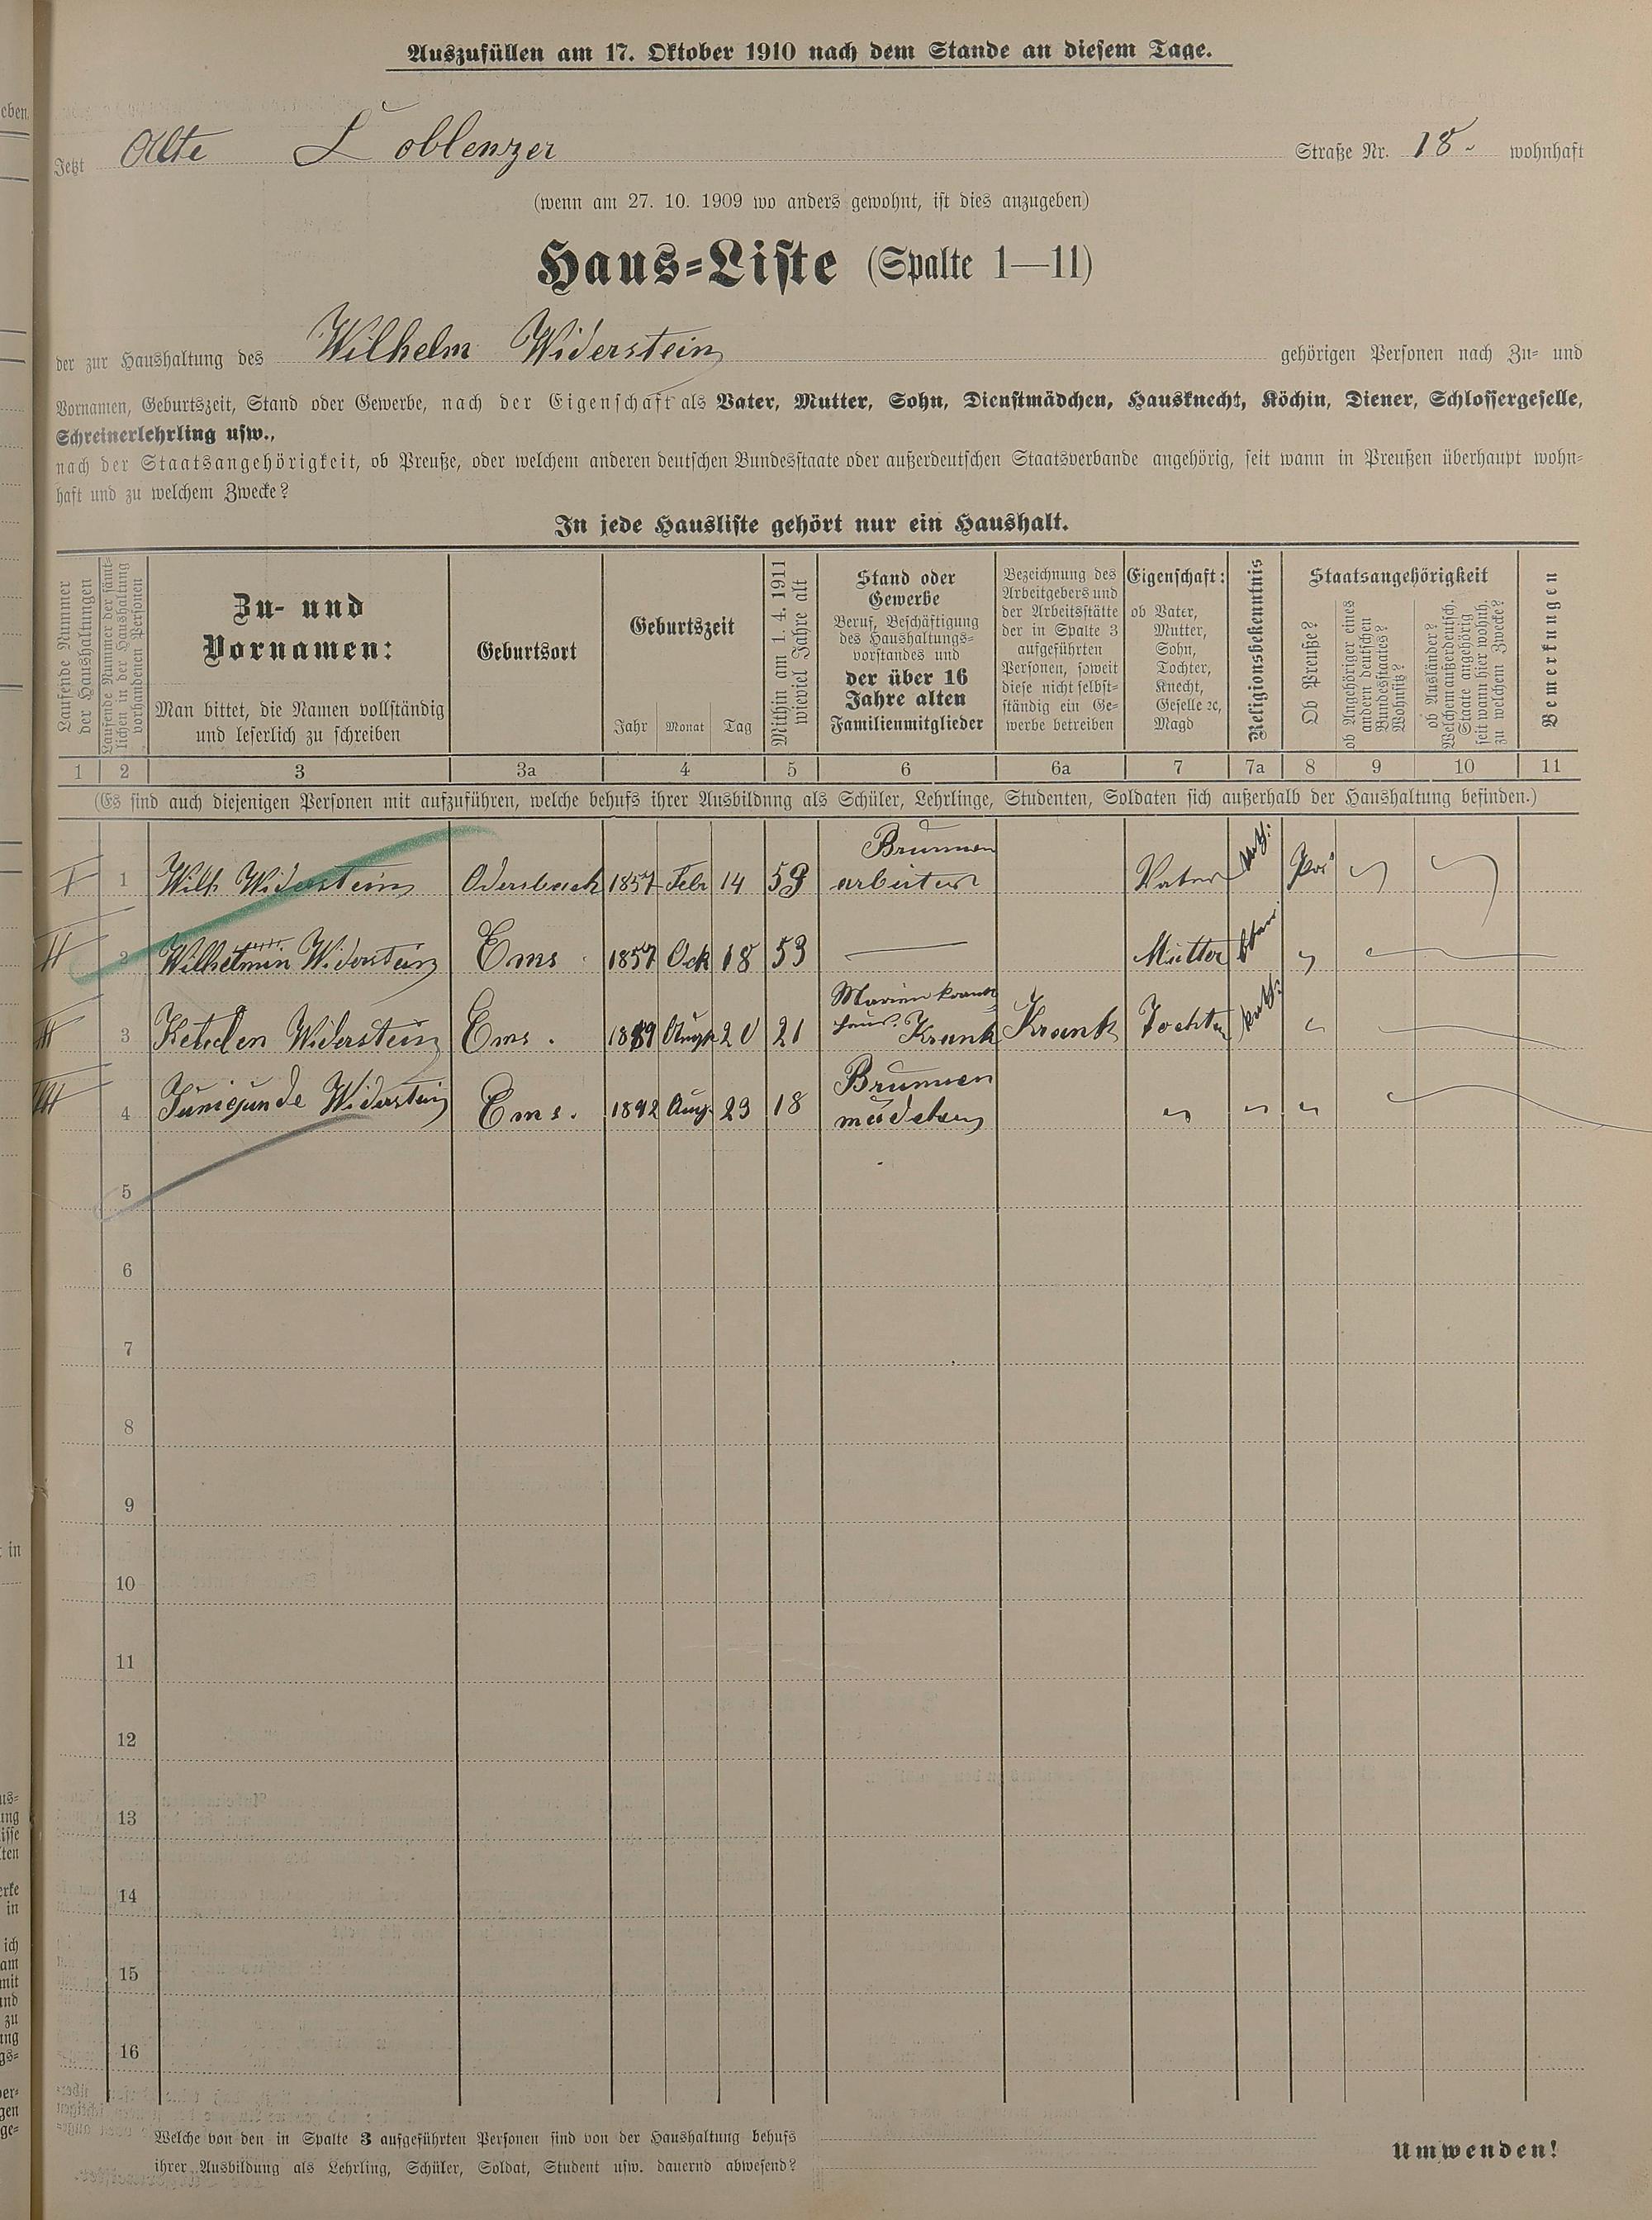 Auszufüllen am 17. Oktober 1910 nach dem Stande an diesem Tage.
Jetzt Alte Coblenzer Straße Nr. 18. wohnhaft
(wenn am 27. 10. 1909 wo anders gewohnt, ist dies anzugeben)
Haus-Liste (Spalte 1—11)
der zur Haushaltung des Wilhelm Widerstein gehörigen Personen nach Zu- und
Vornamen, Geburtszeit, Stand oder Gewerbe, nach der Eigenschaft als Vater, Mutter, Sohn, Dienstmädchen, Hausknecht, Köchin, Diener, Schlossergeselle,
Schreinerlehrling usw.,
nach der Staatsangehörigkeit, ob Preuße, oder welchem anderen deutschen Bundesstaate oder außerdeutschen Staatsverbande angehörig, seit wann in Preußen überhaupt wohn-
haft und zu welchem Zwecke?
In jede Hausliste gehört nur ein Haushalt.
Laufende Nummer
der Haushaltungen
Laufende Nummer der sämt-
lichen in der Haushaltung
vorhandenen Personen
Zu- und
Vornamen:
Man bittet, die Namen vollständig
und leserlich zu schreiben
Geburtsort
Geburtszeit
Jahr Monat Tag
Mithin am 1. 4. 1911
wieviel Jahre alt
Stand oder
Gewerbe
Beruf, Beschäftigung
des Haushaltungs-
vorstandes und
der über 16
Jahre alten
Familienmitglieder
Bezeichnung des
Arbeitgebers und
der Arbeitsstätte
der in Spalte 3
aufgeführten
Personen, soweit
diese nicht selbst-
ständig ein Ge-
werbe betreiben
Eigenschaft:
ob Vater,
Mutter,
Sohn,
Tochter,
Knecht,
Geselle ꝛc,
Magd
Religionsbekenntnis
Staatsangehörigkeit
Ob Preuße?
ob Angehöriger eines
andern deutschen
Bundesstaates?
Wohnsitz?
ob Ausländer?
Welchem außerdeutsch.
Staate angehörig
seit wann hier wohnh.
zu welchem Zwecke?
Bemerkungen
1 2 3 3a 4 5 6 6a 7 7a 8 9 10 11
(Es sind auch diejenigen Personen mit aufzuführen, welche behufs ihrer Ausbildung als Schüler, Lehrlinge, Studenten, Soldaten sich außerhalb der Haushaltung befinden.)
I 1 Wilh Widerstein Odersbach 1857 Febr 14 53 Brunnen Vater kath:
arbeiter
II 2 Wilhelmin Widerstein Ems 1857 Ock 18 53 — Mutter "
III 3 Widerstein Ems. 1889 20 21 Krank Krank Tochter kath: "
IIII 4 Widerstein Ems. 1892 Aug. 23 18 Brunnen " " "
mädchen
5
6
7
8
9
10
11
12
13
14
15
16
Welche von den in Spalte 3 aufgeführten Personen sind von der Haushaltung behufs
ihrer Ausbildung als Lehrling, Schüler, Soldat, Student usw. dauernd abwesend?
Umwenden!